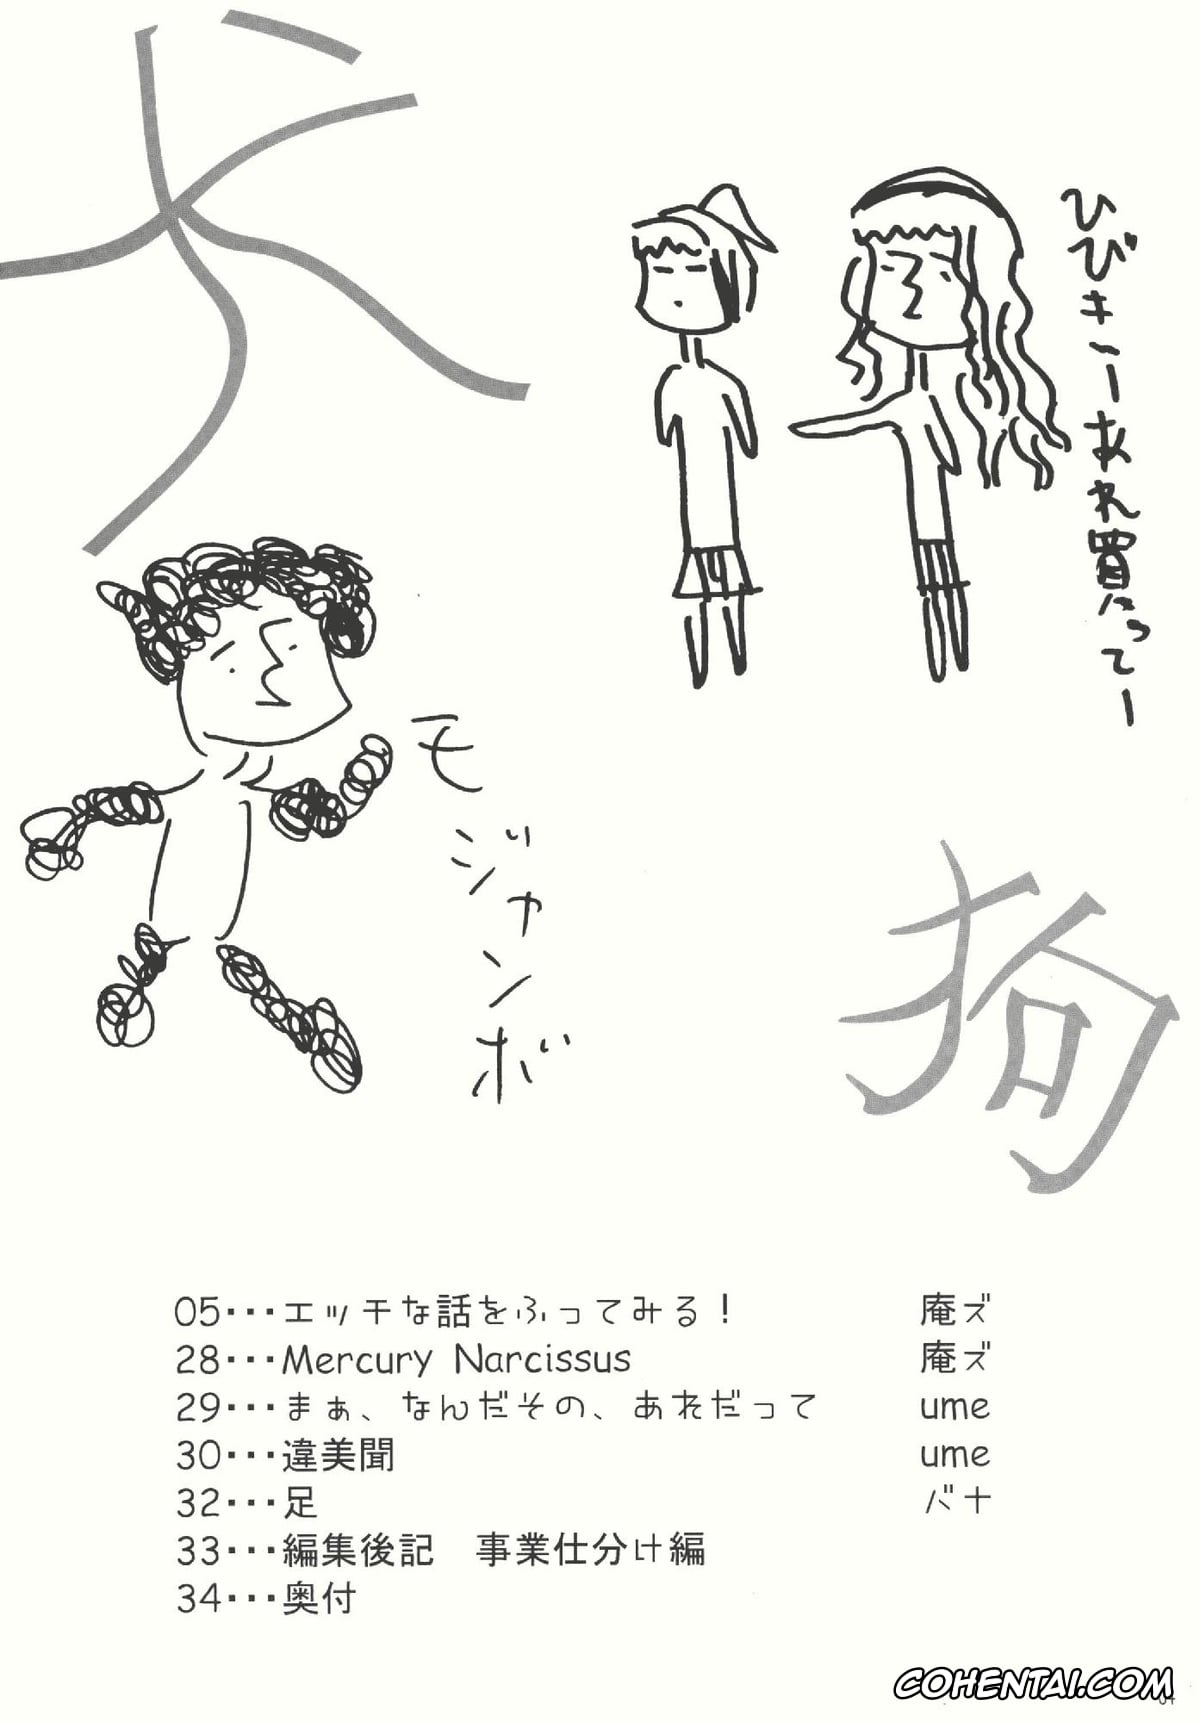 犬
ひびきーあれ買ってー
モジャンボ
狗
05･･･エッチな話をふってみる！ 庵ズ
28･･･Mercury Narcissus 庵ズ
29･･･まぁ、なんだその、あれだって ume
30･･･違美聞 ume
32･･･足 バナ
33･･･編集後記 事業仕分け編
34･･･奥付
COHENTAI.COM
04